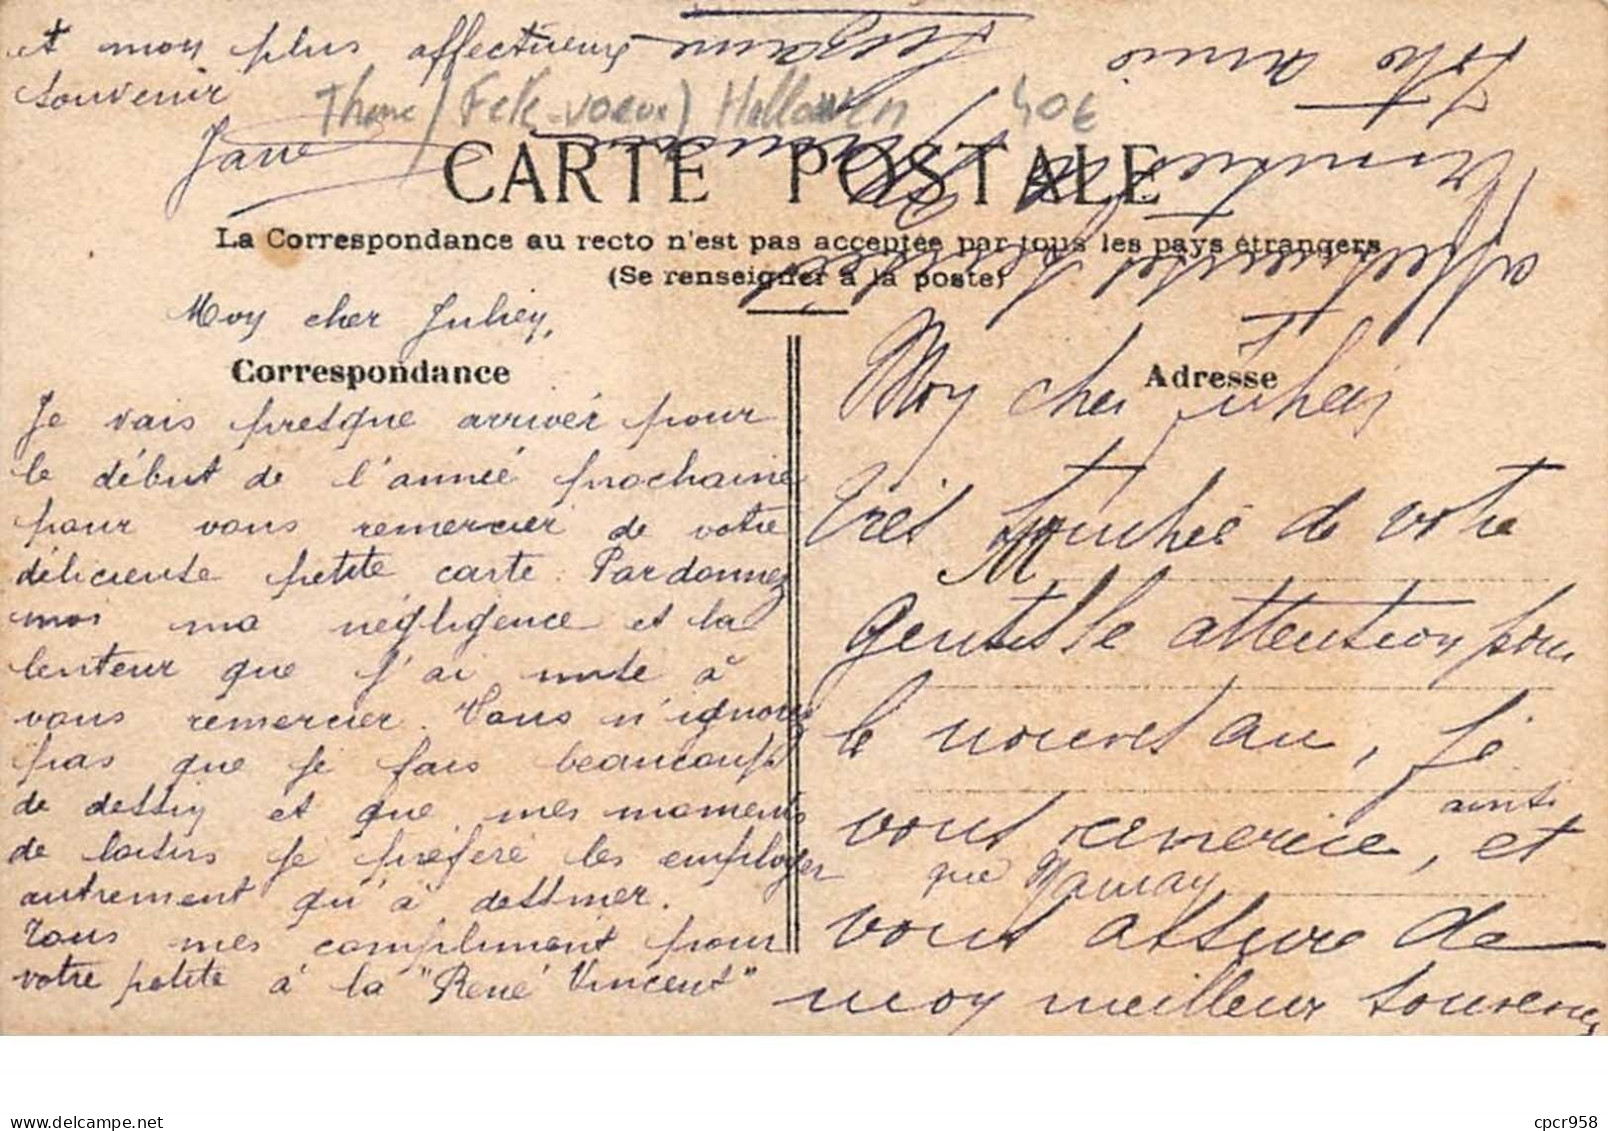 et mon plus affectueux
souvenir
Jane
Theme (Fete-voeux) Halloween 40€
CARTE POSTALE
La Correspondance au recto n'est pas acceptée par tous les pays étrangers
(Se renseigner à la poste)
Correspondance
Moy cher Julien,
Je vais presque arriver pour
le début de l'année prochaine
pour vous remercier de votre
délicieuse petite carte. Pardonnez
moi ma négligence et la
lenteur que j'ai mise à
vous remercier. Vous n'ignorez
pas que je fais beaucoup
de dessin et que mes moments
de loisirs je préfère les employer
autrement qu'à dessiner.
Tous mes compliment pour
votre petite à la "René Vincent"
Adresse
Moy cher Julien
très touchée de votre
gentille attention pour
le nouvel an, je
vous remercie, ainsi
que Maman et
vous assure de
moy meilleur souvenir
affectueuses
amitiés
Votre amie
Suzanne
cpcr958